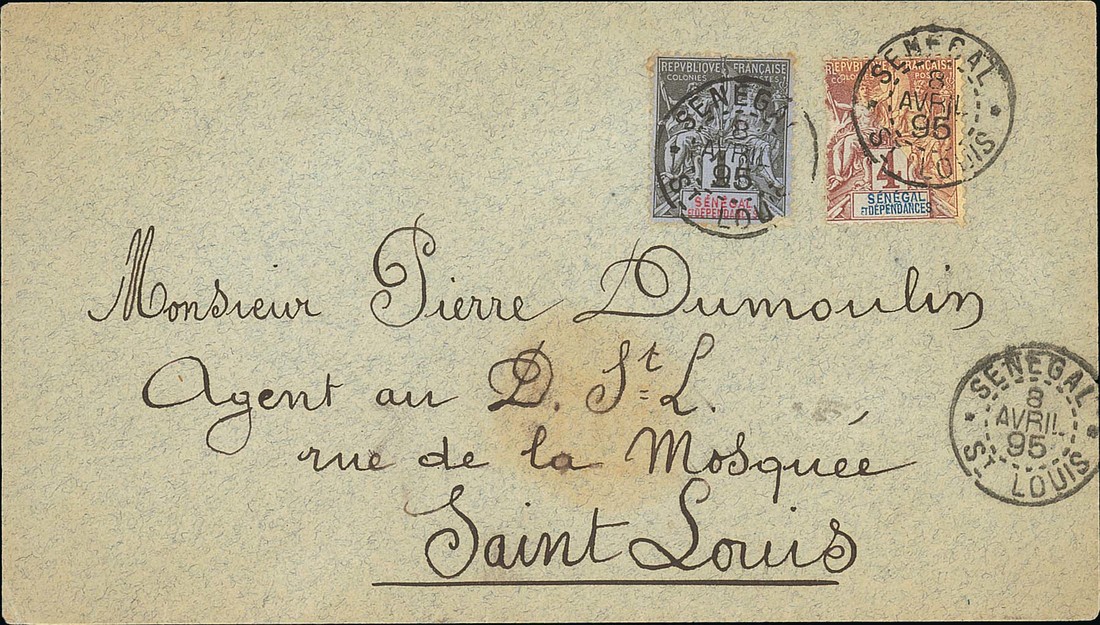 REPVBLIQUE FRANÇAISE
COLONIES POSTES
1
SÉNÉGAL
ET DÉPENDANCES
SENEGAL
8
AVRIL
95
ST LOUIS
REPVBLIQUE FRANÇAISE
COLONIES POSTES
4
SÉNÉGAL
ET DÉPENDANCES
SENEGAL
8
AVRIL
95
ST LOUIS
Monsieur Pierre Dumoulin
Agent au D. St L.
rue de la Mosquée
Saint Louis
SENEGAL
8
AVRIL
95
ST LOUIS